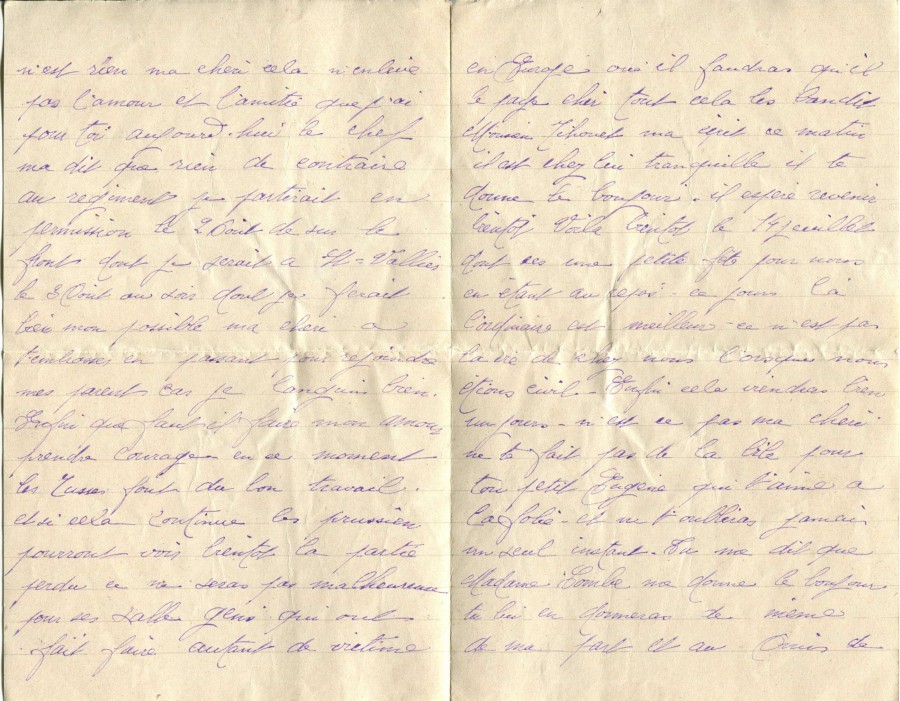 n'est rien ma cheri cela n'enleve
pas l'amour et l'amitié que j'ai
pour toi aujourd.hui le chef
ma dit que rien de contraire
au regiment je partirait en
permission le 2 Oout de sur le
front dont je serait a St=Vallier
le 3 Oout au soir dont je ferait
bien mon possible ma cheri a
t'embrasser en passant pour rejoindre
mes parent car je languis bien.
Enfin que faut il faire mon amour
prendre courage en ce moment
les Russes font du bon travail.
et si cela continue les prussien
pourront voir bientot la partie
perdu ce ne seras pas malheureux
pour ses salle gens qui ont
fait faire autant de victime
en Europe oui il faudras qu'il
le paye cher tout cela les bandit
Monsieur ma écrit ce matin
il est chez lui tranquille il te
donne le bonjour. il espère revenir
bientot Voila bientot le 14 juillet
dont ses une petite fête pour nous
en étant au repos - ce jours la
l'ordinaire est meilleur - ce n'est pas
la vie de chez nous l'orsque nous
étions civil - Enfin cela viendras bien
un jours - n'est ce pas ma cheri
ne te fait pas de la bile pour
ton petit Eugène qui t'aime a
la folie - et ne t'oublieras jamais
un seul instant. Tu me dit que
Madame Combe me donne le bonjour
tu lui en donneras de même
de ma part et au Amis de